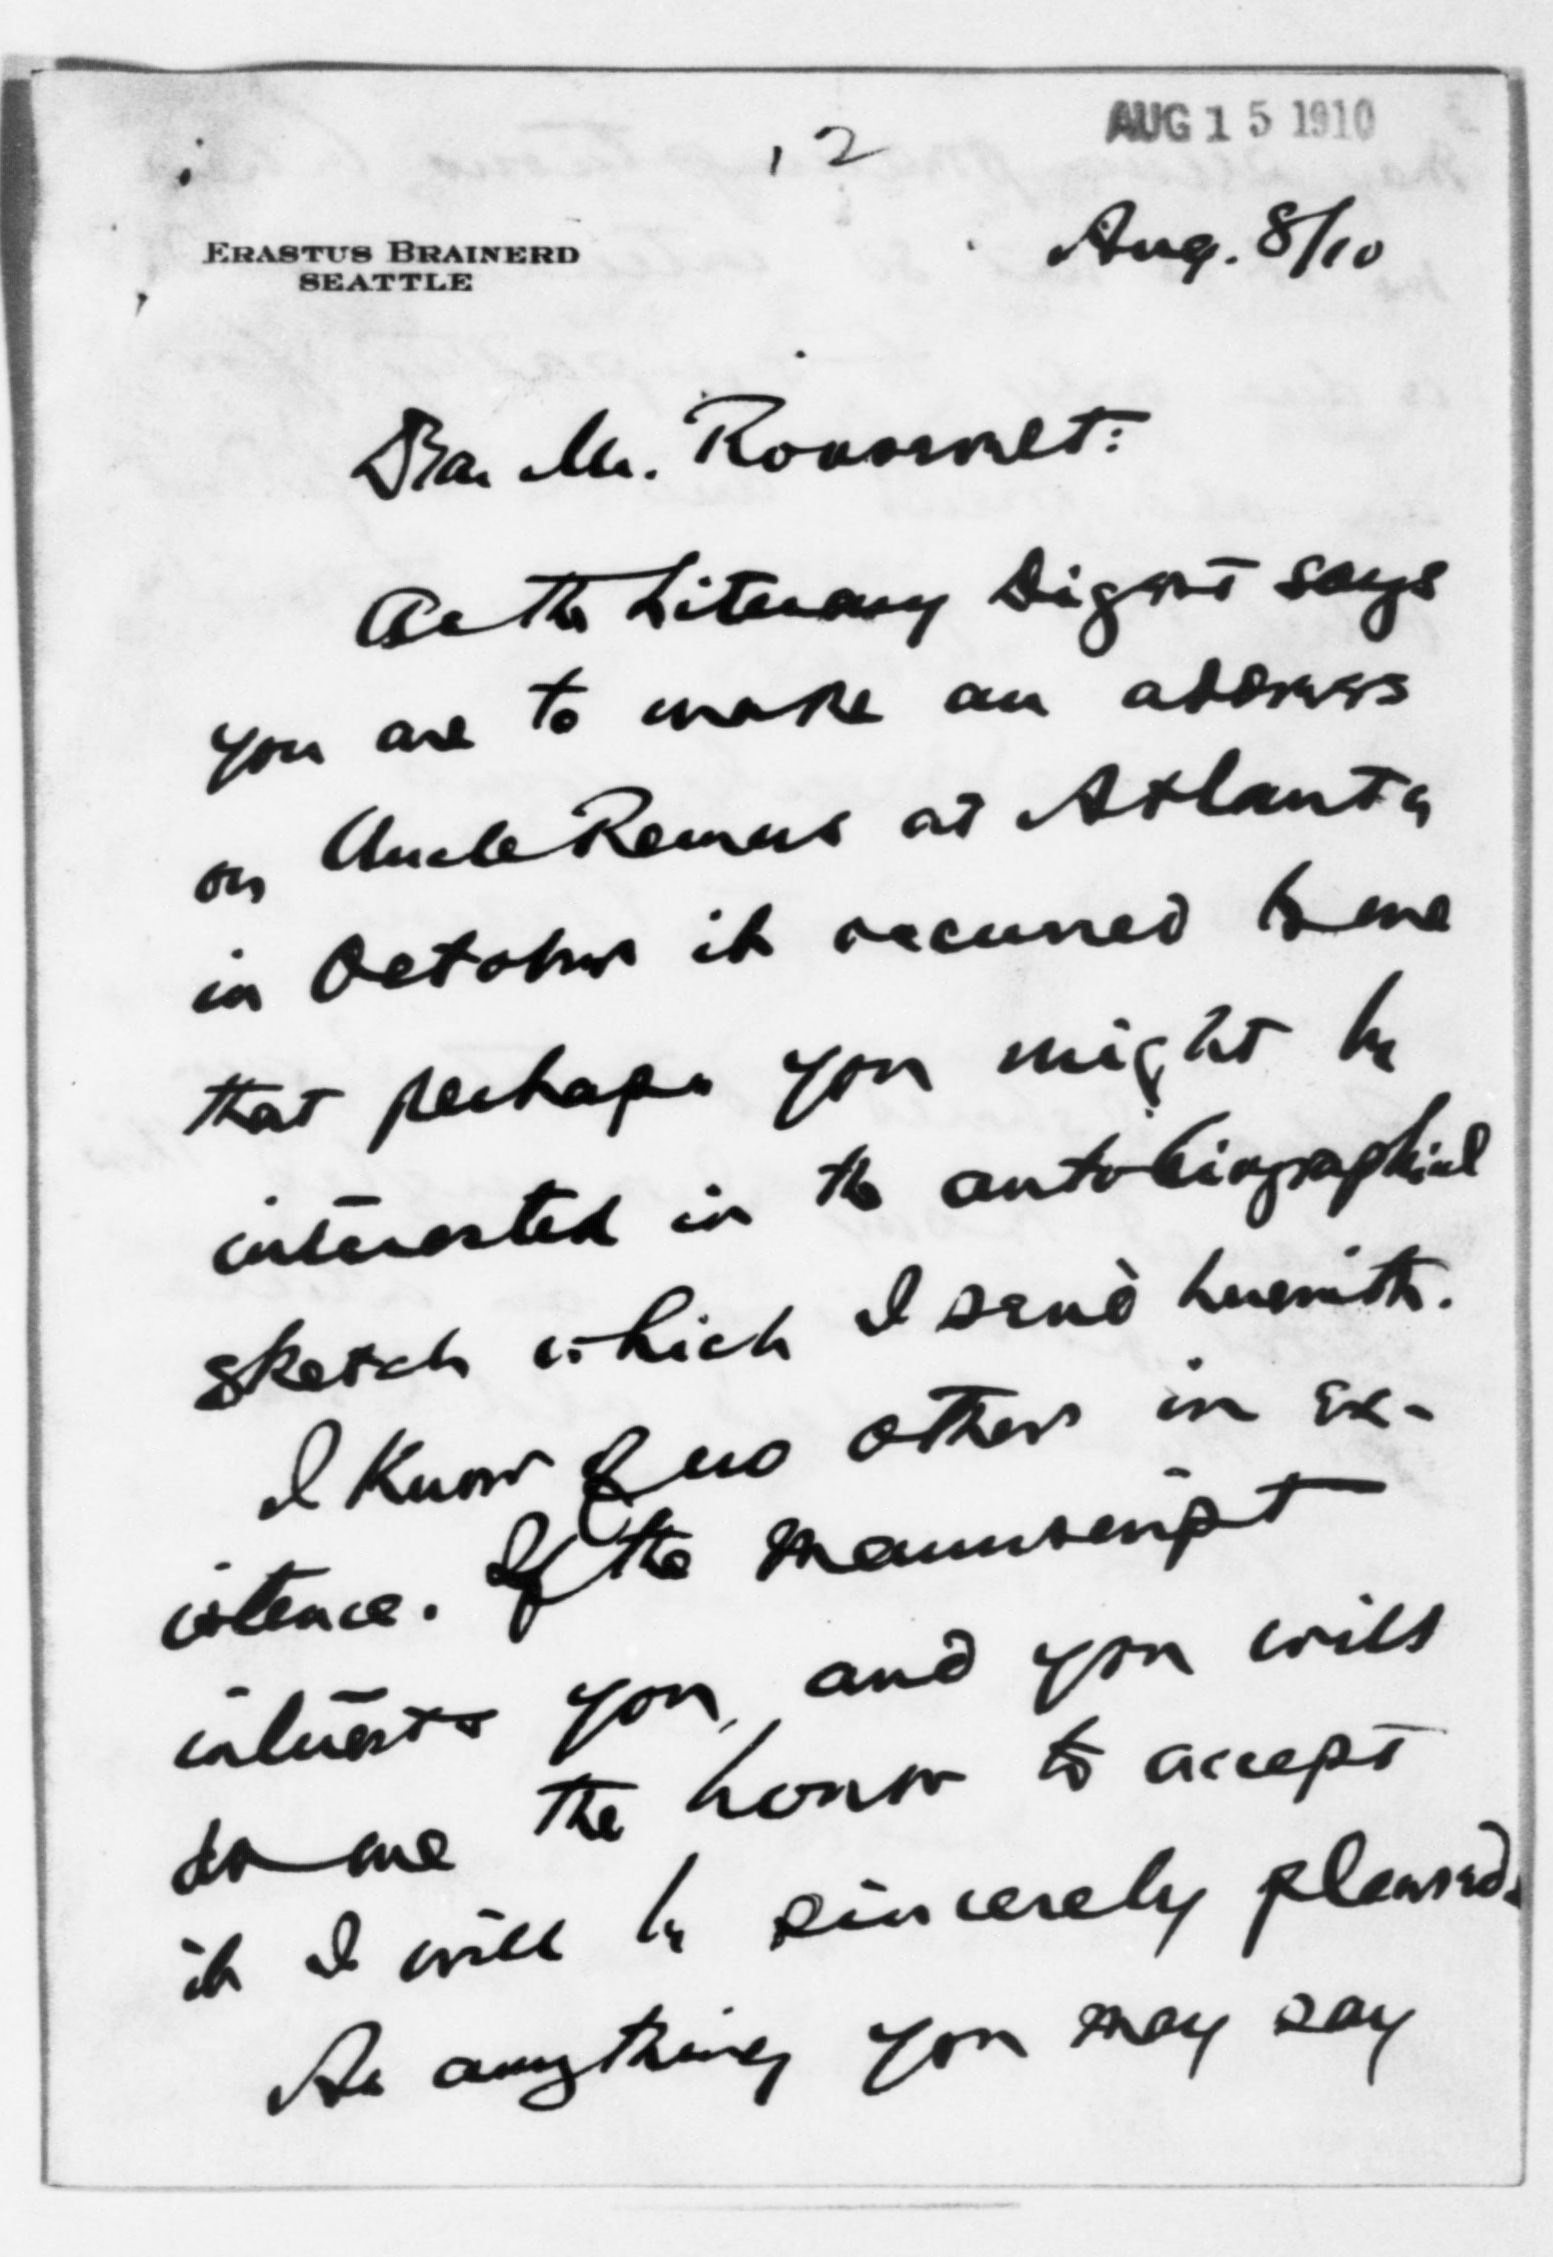 AUG 15 1910
12
Aug. 8/10
ERASTUS BRAINERD
SEATTLE
Dear Mr. Roosevelt:
As the Literary Digest says
you are to make an address
on Uncle Remus at Atlanta
in October it occurred to me
that perhaps you might be
interested in the autobiographical
sketch which I send herewith.
I know of no other in ex-
istence. If the manuscript
interests you, and you will
do me the honor to accept
it I will be sincerely pleased.
As anything you may say